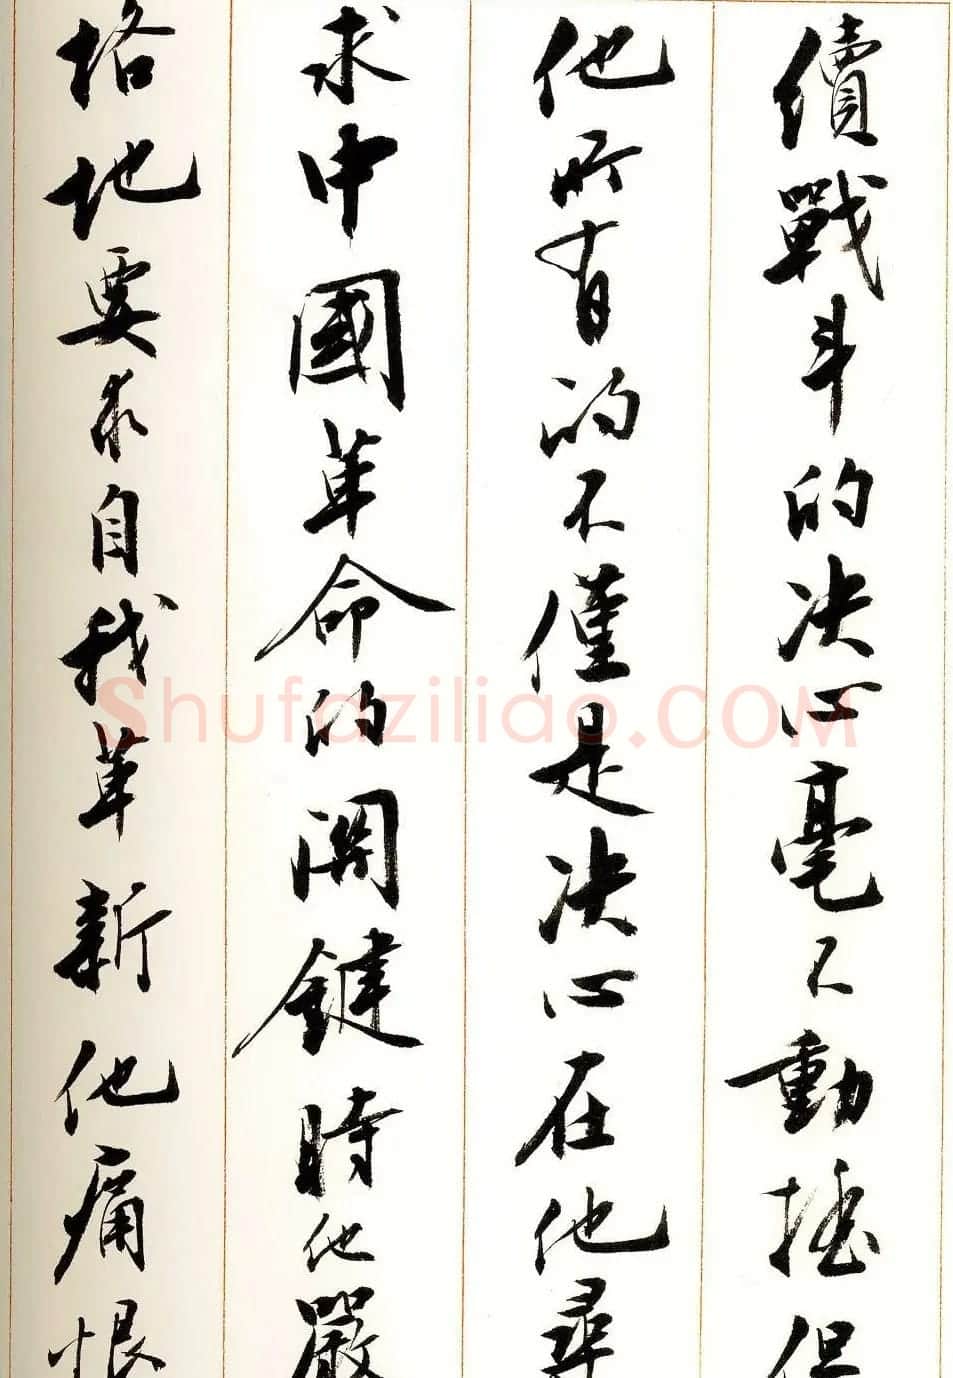 續戰斗的决心毫不動摇但
他所有的不僅是决心在他尋
求中國革命的関鍵時他嚴
格地要求自我革新他痛恨
Shufaziliao.COM